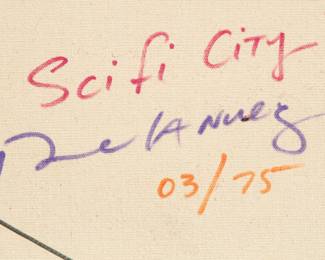 Scifi City
De la Nuez
03/75